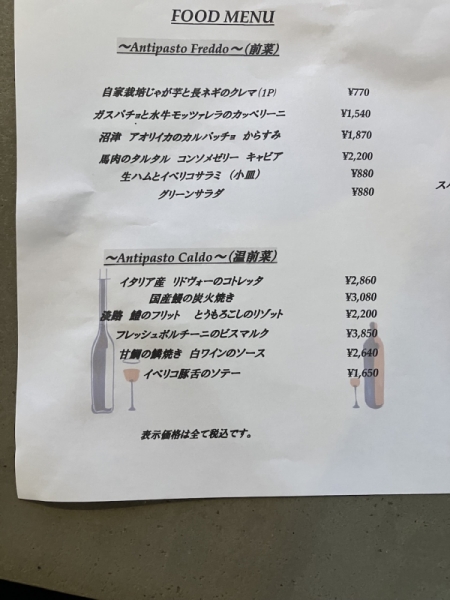 FOOD MENU
～Antipasto Freddo～(前菜)
自家栽培じゃが芋と長ネギのクレマ(1P) ¥770
ガスパチョと水牛モッツァレラのカッペリーニ ¥1,540
沼津 アオリイカのカルパッチョ からすみ ¥1,870
馬肉のタルタル コンソメゼリー キャビア ¥2,200
生ハムとイベリコサラミ (小皿) ¥880
グリーンサラダ ¥880
～Antipasto Caldo～(温前菜)
イタリア産 リドヴォーのコトレッタ ¥2,860
国産鰻の炭火焼き ¥3,080
淡路 鱧のフリット とうもろこしのリゾット ¥2,200
フレッシュポルチーニのビスマルク ¥3,850
甘鯛の鱗焼き 白ワインのソース ¥2,640
イベリコ豚舌のソテー ¥1,650
表示価格は全て税込です。